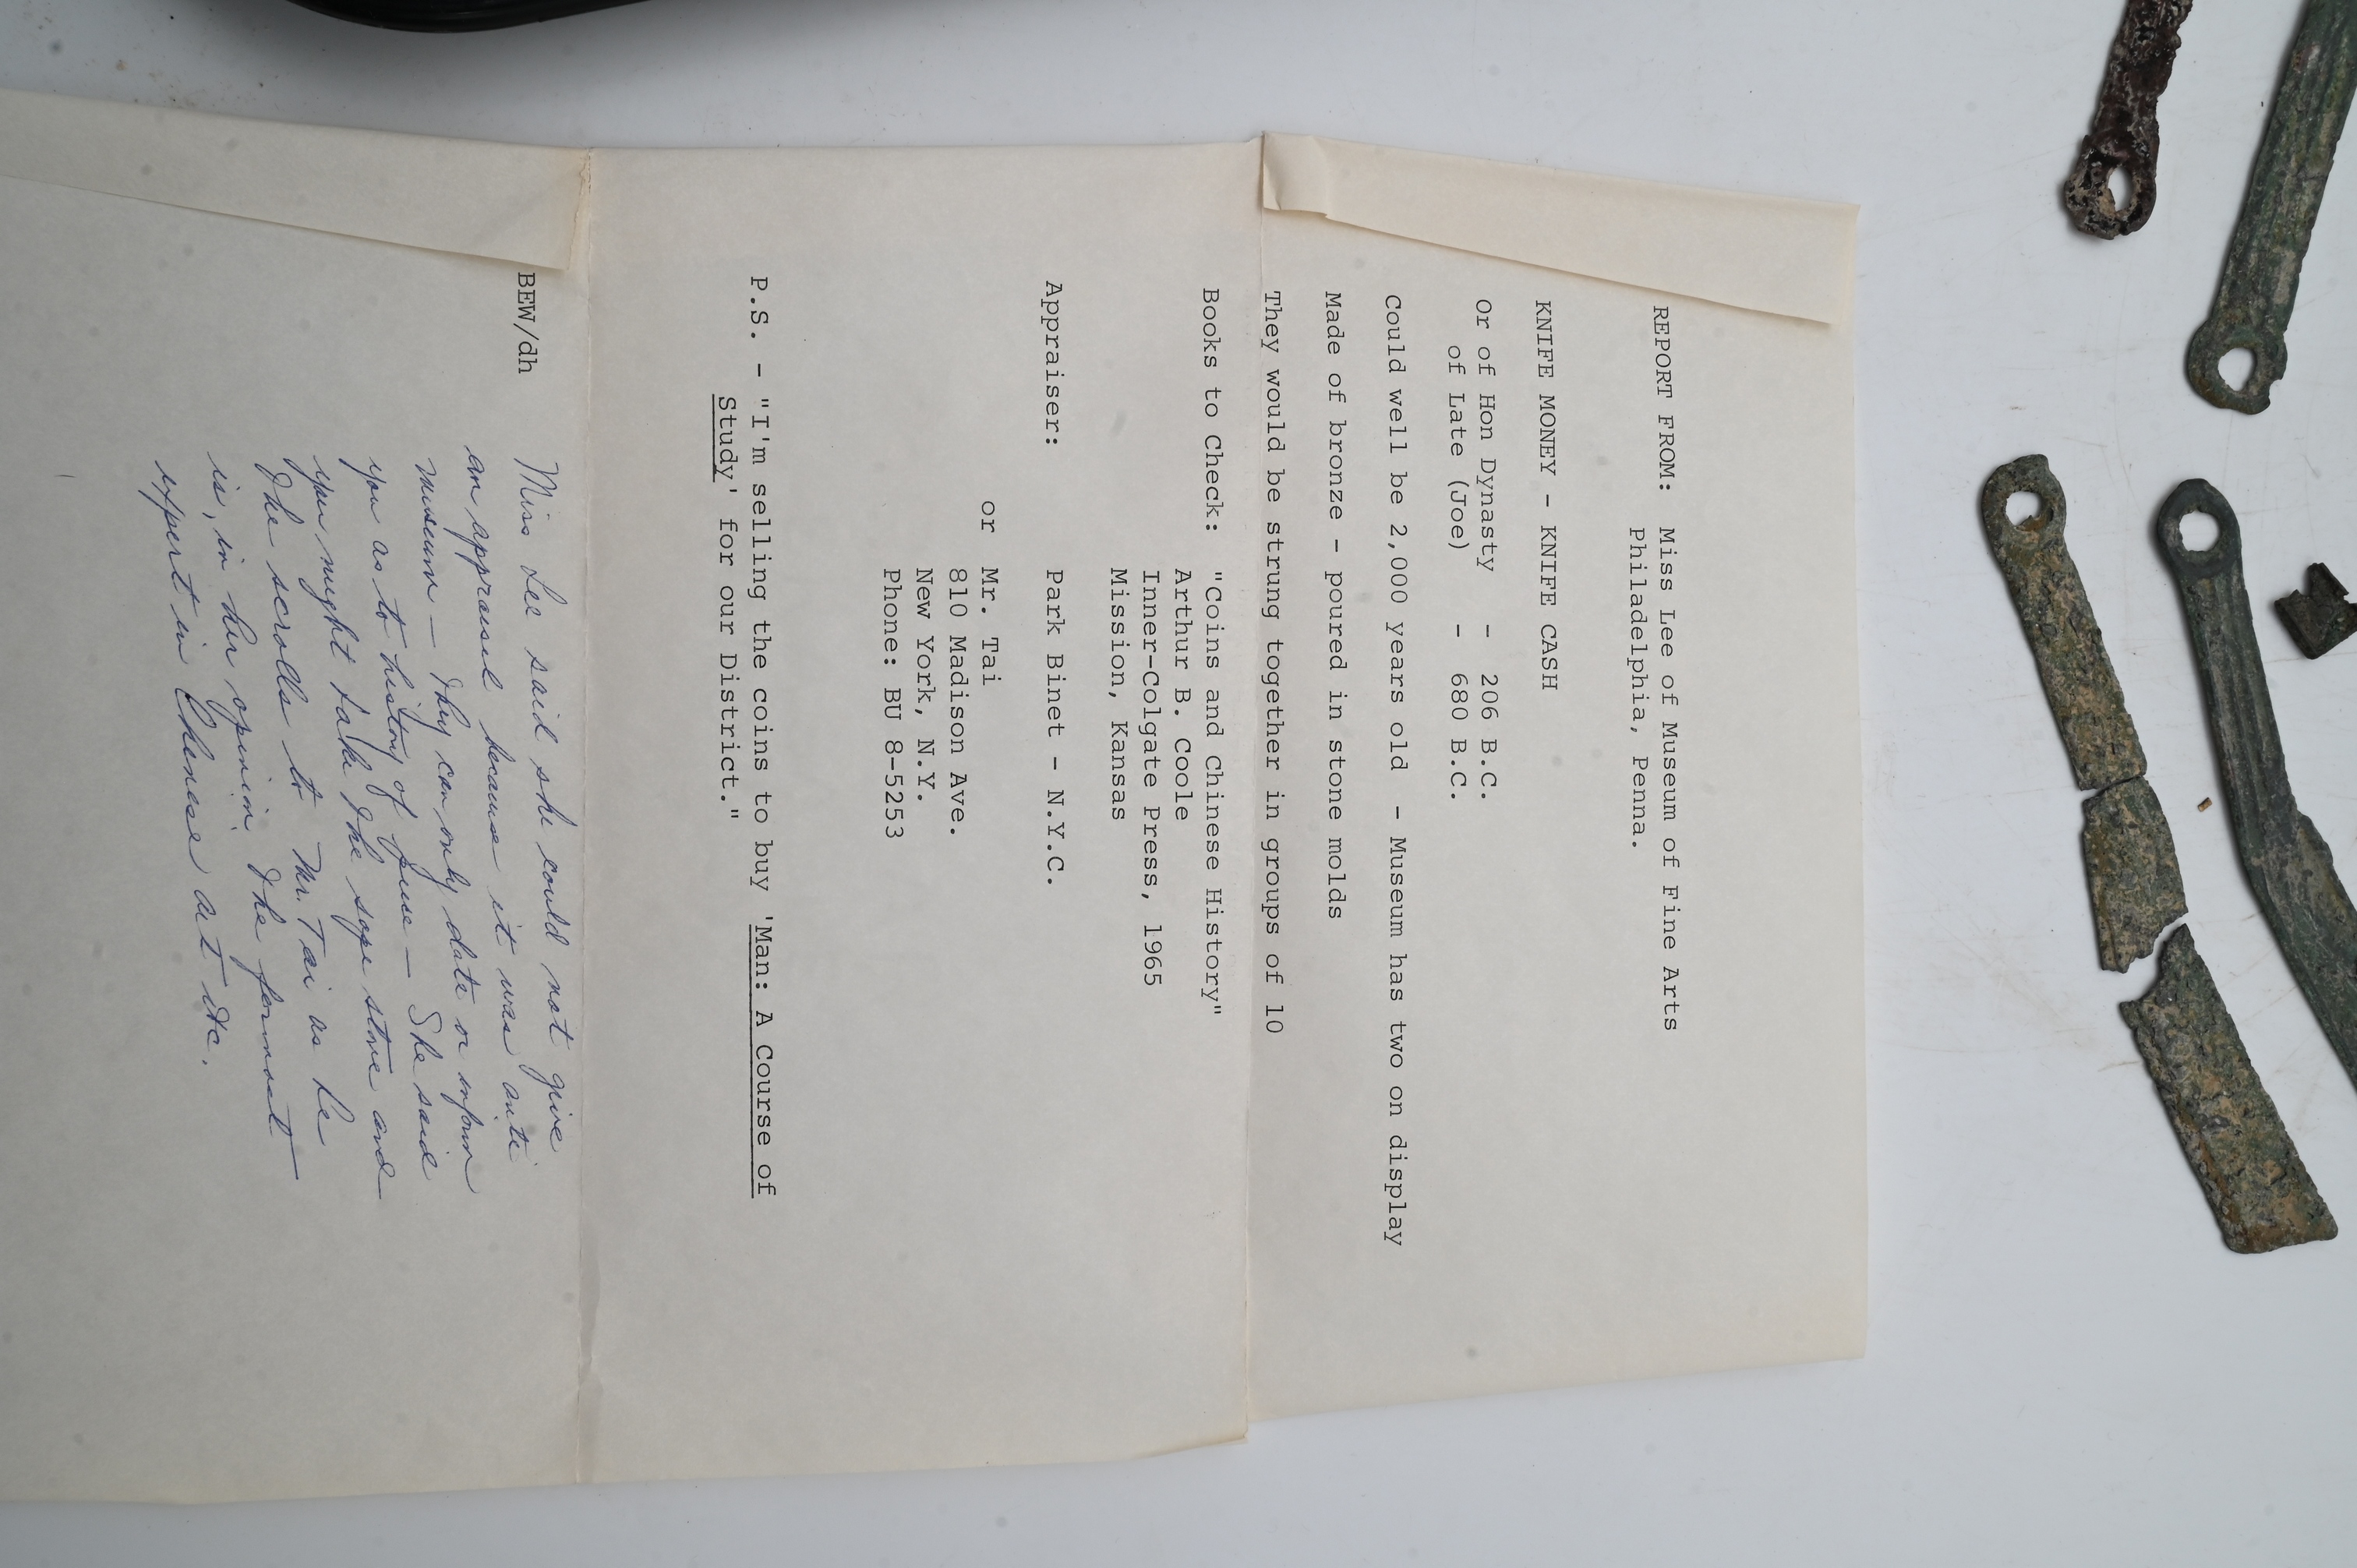 REPORT FROM: Miss Lee of Museum of Fine Arts
Philadelphia, Penna.
KNIFE MONEY - KNIFE CASH
Or of Hon Dynasty - 206 B.C.
of Late (Joe) - 680 B.C.
Could well be 2,000 years old - Museum has two on display
Made of bronze - poured in stone molds
They would be strung together in groups of 10
Books to Check: "Coins and Chinese History"
Arthur B. Coole
Inner-Colgate Press, 1965
Mission, Kansas
Appraiser: Park Binet - N.Y.C.
or Mr. Tai
810 Madison Ave.
New York, N.Y.
Phone: BU 8-5253
P.S. - "I'm selling the coins to buy 'Man: A Course of
Study' for our District."
BEW/dh
Miss Lee said she could not give
an appraisel because it was anti
museum — They can only date or inform
you as to history of piece — She said
you might take the sope stone and
the scrolls to Mr. Tai as he
is, in her opinion, the formost
expert in Chenese art etc.